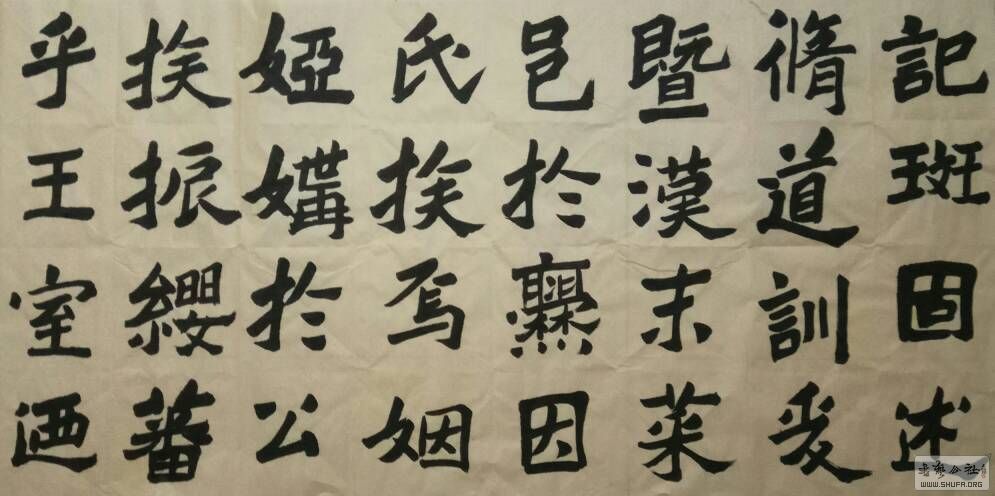 記斑固述
脩道訓爰
暨漢末菜
邑於爨因
氏族焉姻
婭媾於公
族振纓蕃
乎王室迺
书艺公社
WWW.SHUFA.ORG